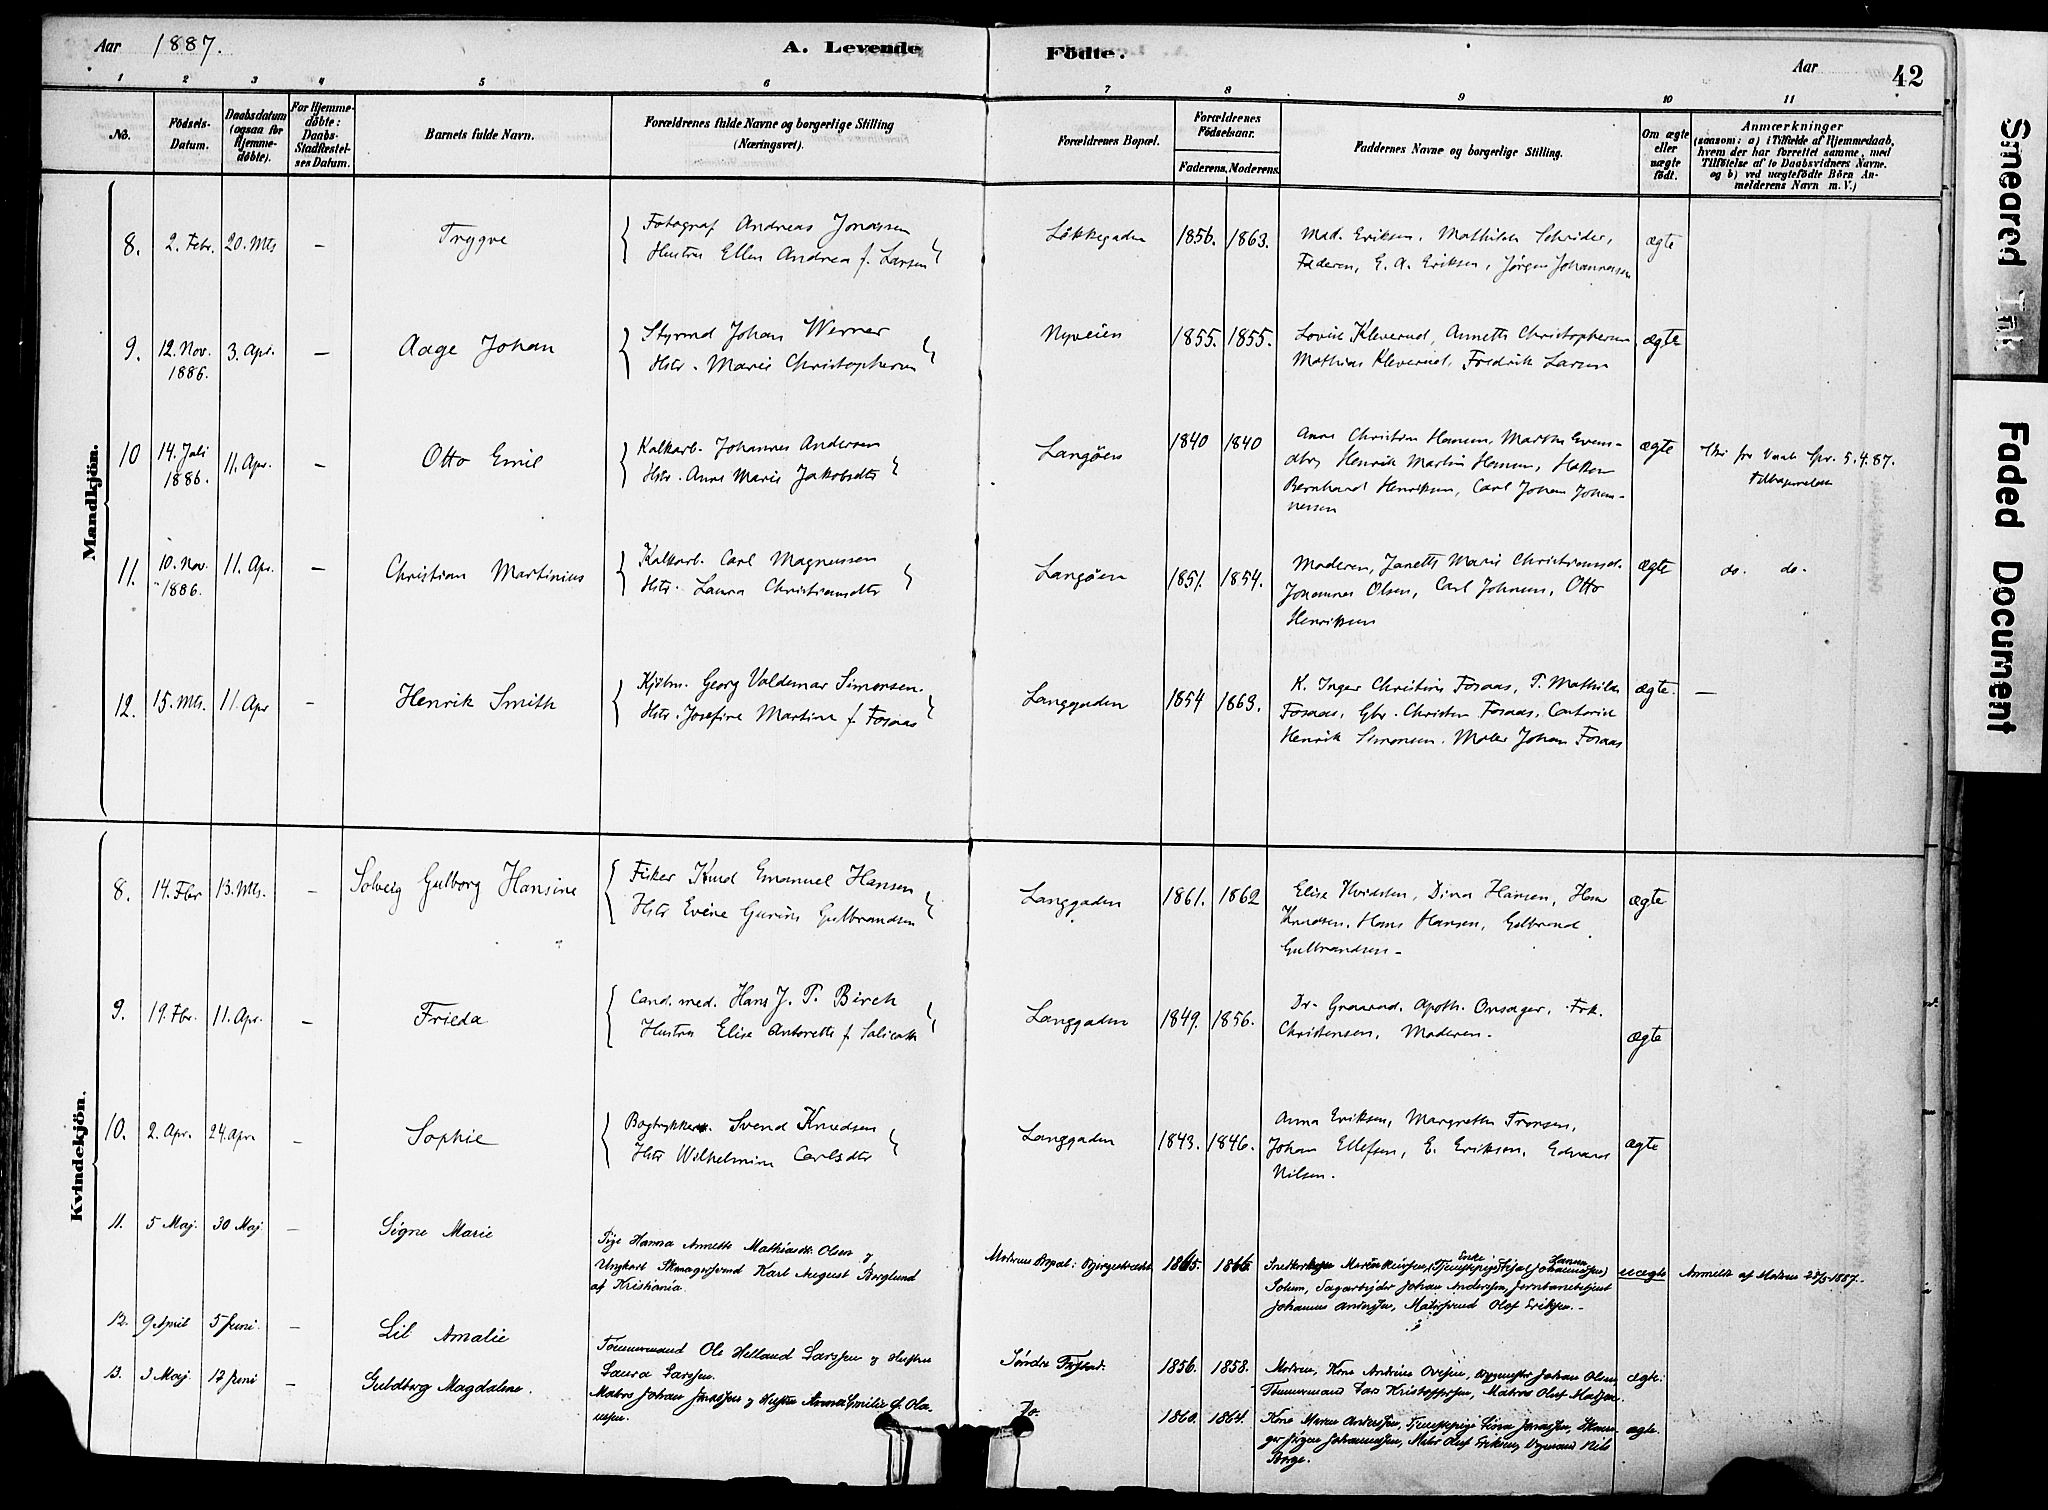 Aar 1887. A. Levende Födte. Aar 42
1 2 3 4 5 6 7 8 9 10 11
No.
Födsels-Datum.
Daabsdatum (ogsaa for Hjemme-døbte).
For Hjemme-døbte: Daabs-Stadfæstel-ses Datum.
Barnets fulde Navn.
Forældrenes fulde Navne og borgerlige Stilling (Næringsvei).
Forældrenes Bopæl.
Forældrenes Födselsaar.
Faderens. Moderens.
Faddernes Navne og borgerlige Stilling.
Om ægte eller uægte født.
Anmærkninger
(saasom: a) i Tilfælde af Hjemmedaab,
hvem der har forrettet samme, med
Tilføielse af to Daabsvidners Navne.
og b) ved uægtefödte Börn An-
melderens Navn m. V.)
Mandkjön.
8. 2. Febr. 20. Mts – Trygve Fotograf Andreas Jonassen Løkkegaden 1856. 1863. Mad. Eriksen, Mathilde Schrider, ægte
Hustru Ellen Andrea f. Larsen Faderen, E. A. Eriksen, Jørgen Johannessen
9. 12. Nov. 1886. 3. Apr. – Aage Johan Styrmd Johan Werner Nyveien 1855. 1855. Lovise Kleverud, Annette Christophersen ægte
Hstr. Marie Christophersen Mathias Kleverud, Fredrik Larsen
10 14. Juli 1886. 11. Apr. – Otto Emil Kalkarb. Johannes Andersen Langøen 1840 1840 Anne Christine Hansen, Marthe ægte 5.4.87.
Hstr. Anne Marie Jakobsdtr Henrik Martin Hansen, Hakon
Bernhard Henriksen, Carl Johan Johan-
nessen
11. 10. Nov. 1886. 11. Apr. – Christian Martinius Kalkarb. Carl Magnussen Langøen 1851. 1854. Moderen, Janette Marie Christiansd. ægte do. do.
Hstr. Laura Christiansdtr Johannes Olsen, Carl Johnsen, Otto
Henriksen
12. 15. Mts. 11. Apr – Henrik Smith Kjøbm. Georg Valdemar Simonsen. Langgaden 1854 1863. K. Inger Christine Fosaas, P. Mathilde ægte. –
Hstr. Josefine Martine f. Fosaas Fosaas, Gbr. Christen Fosaas, Contorist
Henrik Simonsen, Maler Johan Fosaas
Kvindekjön.
8. 14. Fbr 13. Mts. – Solveig Gulborg Hansine Fisker Knud Emanuel Hansen Langgaden 1861. 1862 Elise Hvidsten, Dina Hansen, Hans ægte
Hstr Evine Gurine Gulbrandsen Knudsen, Hans Hansen, Gulbrand
Gulbrandsen –
9. 19. Fbr. 11. Apr. – Frieda Cand. med. Hans J. T. Birch Langgaden 1849. 1856. Dr. Graarud, Apoth. Onsager, Frk. ægte
Hustru Elise Antonette f. Salicath Christensen, Moderen –
10. 2. Apr. 24. Apr. – Sophie Bogtrykker. Svend Knudsen Langgaden 1843. 1846. Anna Eriksen, Margrethe Tronsen, ægte
Hstr Wilhelmine Carlsdtr Johan Ellefsen, E. Eriksen, Edvard
Nilsen.
11. 5 Maj. 30 Maj. – Signe Marie Pige Hanna Annette Mathiasdtr. Olsen og Modrens Bopæl: 1865. 1866 uægte Anmeldt af Modren 28/5 1887.
Ungkarl Skomagersvend Karl August Berglund Solum, Sagarbejder Johan Anderssen, Jernbanebetjent
af Kristiania. Johannes Anderssen, Malersvend Olof Eriksen. –
12. 9 April 5 Juni. – Lil Amalie Tømmermand Ole Helland Larssen og Hustru Søndre 1856. 1858. Modren, Kone Andrine Ovesen, Johan Olsen ægte.
Laura Larssen. Tømmermand Lars Kristoffersen, Matros Oluf Madsen.
13. 3 Maj. 12 Juni – Guldborg Magdalene. Matros Johan Jonassen og Hustru Anna Emilie f. Ola- Do. 1860. 1864. Kone Maren Anderssen, Tjenestepige Lina Jonassen, ægte.
ussen. Jørgen Johannessen, Matr Oluf Eriksen, Nils
Borge.
Smeared Ink
Faded Document